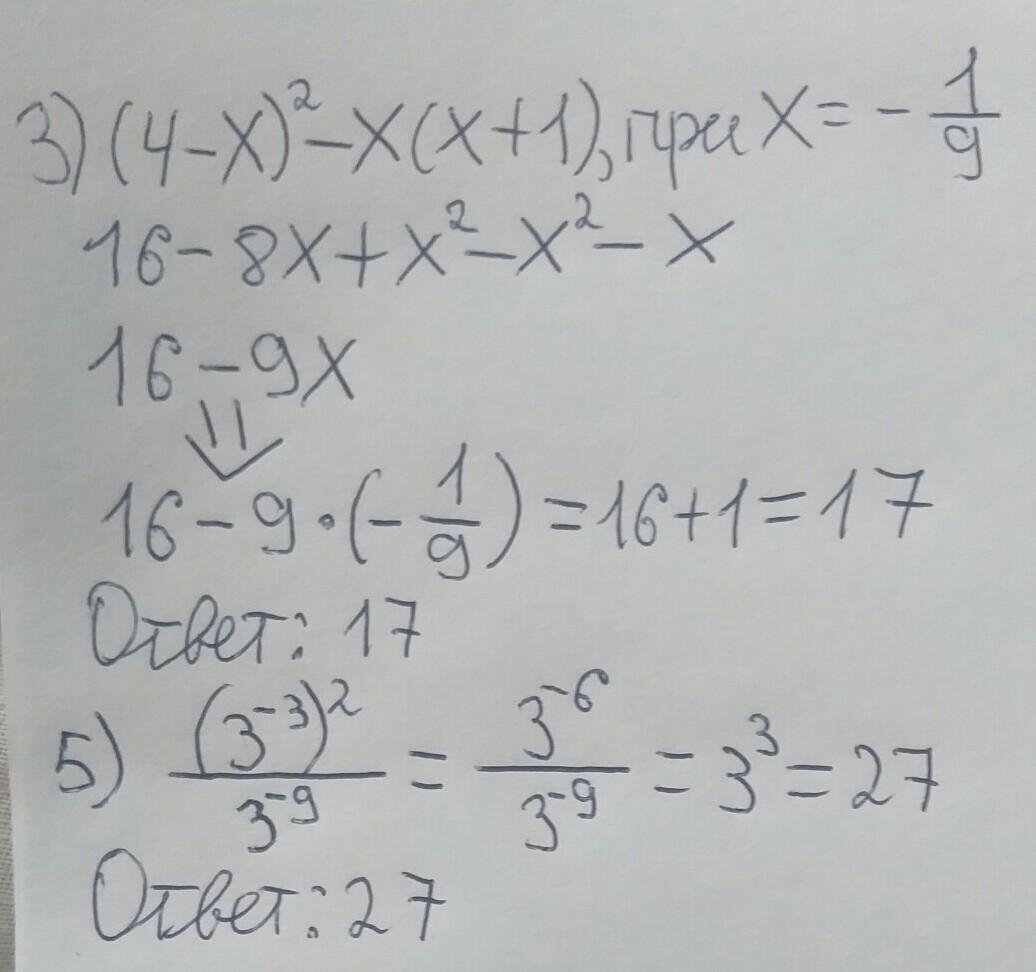 3) (4-x)² - x(x+1), при x = - 1/9
16 - 8x + x² - x² - x
16 - 9x
⇓
16 - 9 · (- 1/9) = 16 + 1 = 17
Ответ: 17
5) (3⁻³)² / 3⁻⁹ = 3⁻⁶ / 3⁻⁹ = 3³ = 27
Ответ: 27